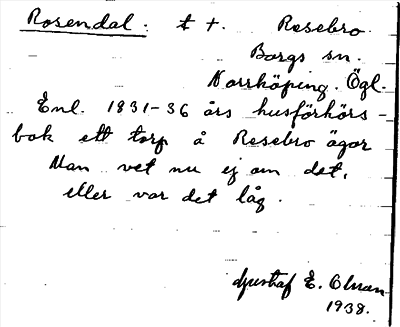 Rosendal. t +. Resebro
Borgs sn.
Norrköping. Ögl.
Enl. 1831-36 års husförhörs-
bok ett torp å Resebro ägor
Man vet nu ej om det,
eller var det låg.
Gustaf E. Olman
1938.